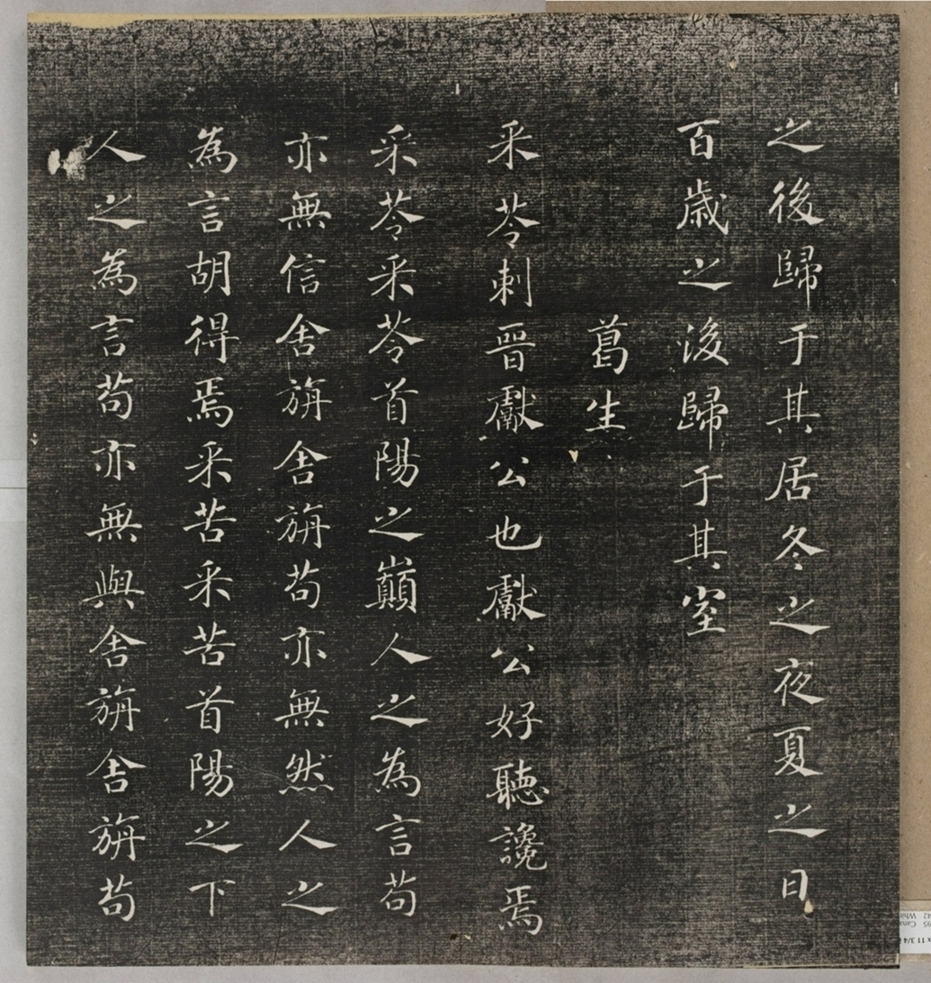 之後歸于其居冬之夜夏之日
百歲之後歸于其室
葛生
采苓刺晉獻公也獻公好聽讒焉
采苓采苓首陽之巔人之為言苟
亦無信舍旃舍旃苟亦無然人之
為言胡得焉采苦采苦首陽之下
人之為言苟亦無與舍旃舍旃苟